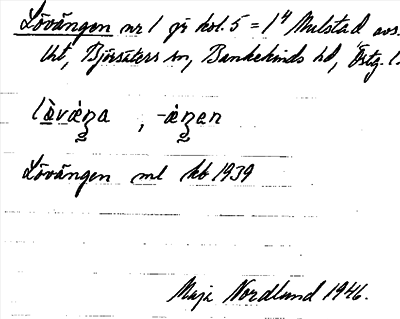 Lövängen nr 1 på kol. 5 = 1⁴ Mulstad avs.
Urö, Björsäters sn, Bankekinds hd, Östg. l.
lǜvàŋa, -àŋan
Lövängen ml kb 1939
Maja Nordlund 1946.